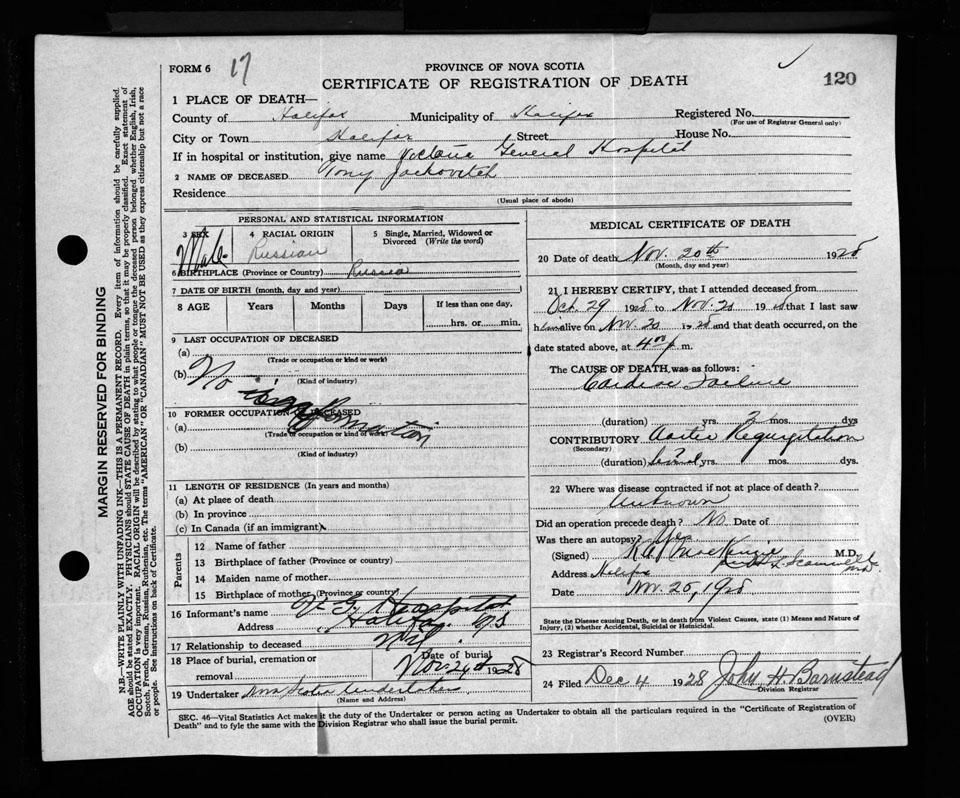 FORM 6
17
PROVINCE OF NOVA SCOTIA
CERTIFICATE OF REGISTRATION OF DEATH
120
1 PLACE OF DEATH—
County of Halifax Municipality of Halifax Registered No.
(For use of Registrar General only)
City or Town Halifax Street House No.
If in hospital or institution, give name Victoria General Hospital
2 NAME OF DECEASED Tony Jackovitch
Residence
(Usual place of abode)
PERSONAL AND STATISTICAL INFORMATION
3 SEX 4 RACIAL ORIGIN 5 Single, Married, Widowed or Divorced (Write the word)
Male Russian
6 BIRTHPLACE (Province or Country) Russia
7 DATE OF BIRTH (month, day and year)
8 AGE Years Months Days If less than one day,
hrs. or min.
9 LAST OCCUPATION OF DECEASED
(a)
(Trade or occupation or kind or work)
(b)
(Kind of industry)
No information
10 FORMER OCCUPATION OF DECEASED
(a)
(Trade or occupation or kind of work)
(b)
(Kind of industry)
11 LENGTH OF RESIDENCE (In years and months)
(a) At place of death
(b) In province
(c) In Canada (if an immigrant)
Parents
12 Name of father
13 Birthplace of father (Province or country)
14 Maiden name of mother
15 Birthplace of mother (Province or country)
16 Informant's name V. G. Hospital
Address Halifax N S
17 Relationship to deceased Nil
18 Place of burial, cremation or removal
Date of burial
Nov 24th 1928
19 Undertaker Nova Scotia Undertakers
(Name and Address)
MEDICAL CERTIFICATE OF DEATH
20 Date of death Nov. 20th 1928
(Month, day and year)
21 I HEREBY CERTIFY, that I attended deceased from
Oct. 29 1928 to Nov. 20 1928 that I last saw
him alive on Nov. 20 1928 and that death occurred, on the
date stated above, at 4 00 p m.
The CAUSE OF DEATH, was as follows:
Cardiac Failure
(duration) yrs. 2 mos. dys
CONTRIBUTORY Aortic Regurgitation
(Secondary)
(duration) yrs. mos. dys.
22 Where was disease contracted if not at place of death?
Unknown
Did an operation precede death? No Date of
Was there an autopsy? Yes
(Signed) MacKenzie M.D.
Address Halifax
Date Nov. 20, 1928
State the Disease causing Death, or in death from Violent Causes, state (1) Means and Nature of Injury, (2) whether Accidental, Suicidal or Homicidal.
23 Registrar's Record Number
24 Filed Dec 4 1928 John H. Barnstead
Division Registrar
SEC. 46—Vital Statistics Act makes it the duty of the Undertaker or person acting as Undertaker to obtain all the particulars required in the "Certificate of Registration of
Death" and to fyle the same with the Division Registrar who shall issue the burial permit.
(OVER)
MARGIN RESERVED FOR BINDING
N.B.—WRITE PLAINLY WITH UNFADING INK—THIS IS A PERMANENT RECORD. Every item of information should be carefully supplied.
AGE should be stated EXACTLY. PHYSICIANS should STATE CAUSE OF DEATH in plain terms, so that it may be properly classified. Exact statement of
OCCUPATION is very important. RACIAL ORIGIN will be described by stating to what people or tongue the deceased person belonged whether English, Irish,
Scotch, French, German, Russian, Ruthenian, etc. The terms "AMERICAN" OR "CANADIAN" MUST NOT BE USED as they express citizenship but not a race
or people. See instructions on back of Certificate.